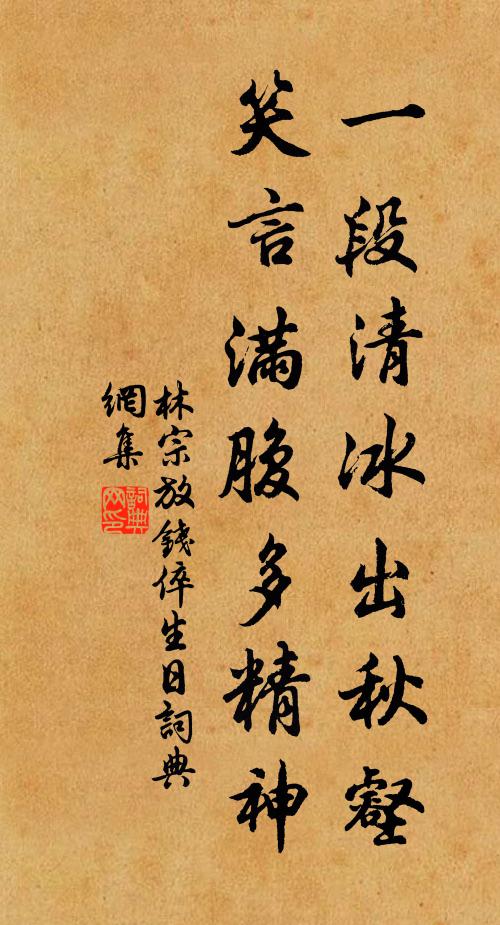 一段清冰出秋壑
笑言滿腹多精神
林宗放錢倅生日詞典
網集
詞典網印